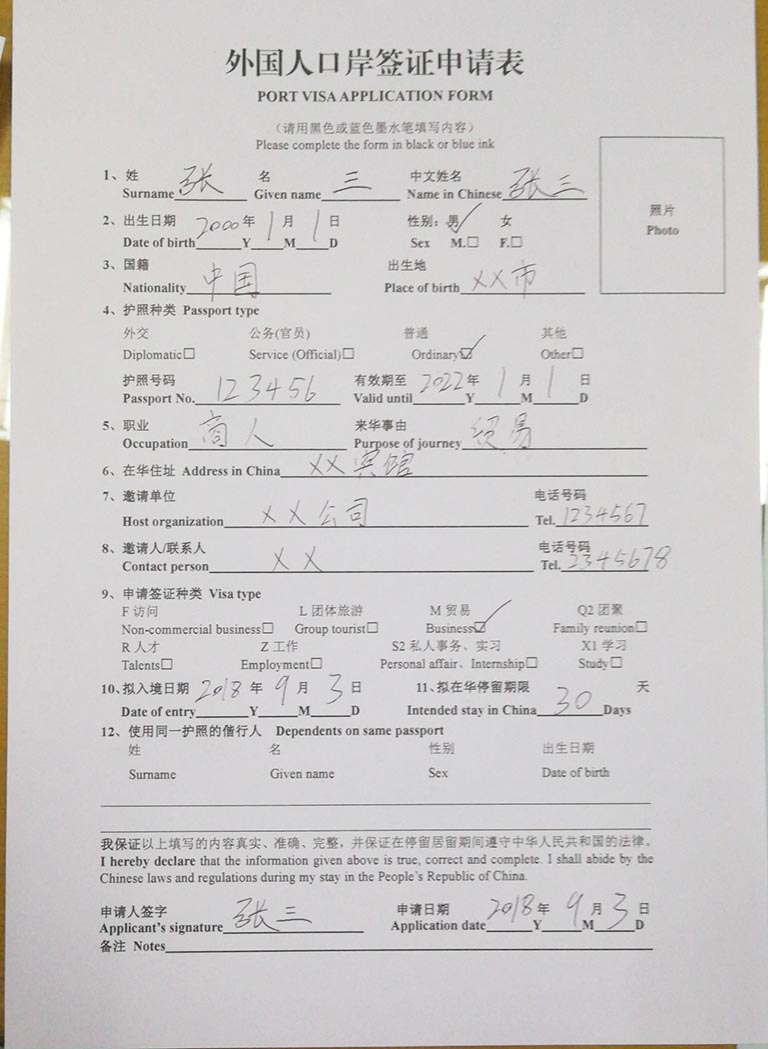 外国人口岸签证申请表
PORT VISA APPLICATION FORM
（请用黑色或蓝色墨水笔填写内容）
Please complete the form in black or blue ink
照片
Photo
1、姓 名 中文姓名
Surname 张 Given name 三 Name in Chinese 张三
2、出生日期 2000 年 1 月 1 日 性别：男 ✓ 女
Date of birth Y M D Sex M.□ F.□
3、国籍 出生地
Nationality 中国 Place of birth XX市
4、护照种类 Passport type
外交 公务(官员) 普通 其他
Diplomatic□ Service (Official)□ Ordinary☑ Other□
护照号码 有效期至 2022 年 1 月 1 日
Passport No. 123456 Valid until Y M D
5、职业 来华事由
Occupation 商人 Purpose of journey 贸易
6、在华住址 Address in China XX宾馆
7、邀请单位 电话号码
Host organization XX公司 Tel. 1234567
8、邀请人/联系人 电话号码
Contact person XX Tel. 2345678
9、申请签证种类 Visa type
F 访问 L 团体旅游 M 贸易 Q2 团聚
Non-commercial business□ Group tourist□ Business☑ Family reunion□
R 人才 Z 工作 S2 私人事务、实习 X1 学习
Talents□ Employment□ Personal affair、Internship□ Study□
10、拟入境日期 2018 年 9 月 3 日 11、拟在华停留期限 30 天
Date of entry Y M D Intended stay in China Days
12、使用同一护照的偕行人 Dependents on same passport
姓 名 性别 出生日期
Surname Given name Sex Date of birth
我保证以上填写的内容真实、准确、完整，并保证在停留居留期间遵守中华人民共和国的法律。
I hereby declare that the information given above is true, correct and complete. I shall abide by the
Chinese laws and regulations during my stay in the People's Republic of China.
申请人签字 申请日期 2018 年 9 月 3 日
Applicant's signature 张三 Application date Y M D
备注 Notes